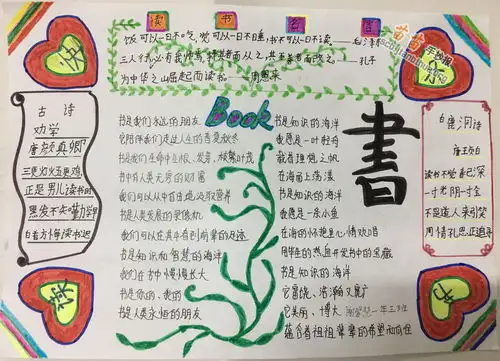 读书名言
饭可以一日不吃，觉可以一日不睡，书不可以一日不读——毛泽东
三人行，必有我师焉，择其善者而从之，其不善者而改之。——孔子
为中华之崛起而读书——周恩来
苗苗手抄报
快
乐
古诗
劝学
唐 颜真卿
三更灯火五更鸡
正是男儿读书时
黑发不知勤学早
白首方悔读书迟
Book
书是我们永远的朋友
它陪伴我们走过人生的春夏秋冬
书是我们生命中生根、发芽、枝繁叶茂
书中有人类无穷的财富
我们可以从中自由地汲取营养
书是人类发展的录像机
我们可以在其中看到前辈的足迹
书是知识和智慧的海洋
我们在书中慢慢长大
书是你的，我的
书是人类永恒的朋友
书是知识的海洋
我愿是一叶轻舟
载着理想之帆
在海面上荡漾
书是知识的海洋
我愿是一条小鱼
在海的怀抱里心情欢唱
用毕生的热血开发书中的宝藏
书是知识的海洋
它富饶、浩瀚又宽广
它美丽、博大
一年三班
蕴含着祖祖辈辈的希望和向往
書
白鹿洞诗
唐 王贞白
读书不觉春已深
一寸光阴一寸金
不是道人来引笑
周情孔思正追寻